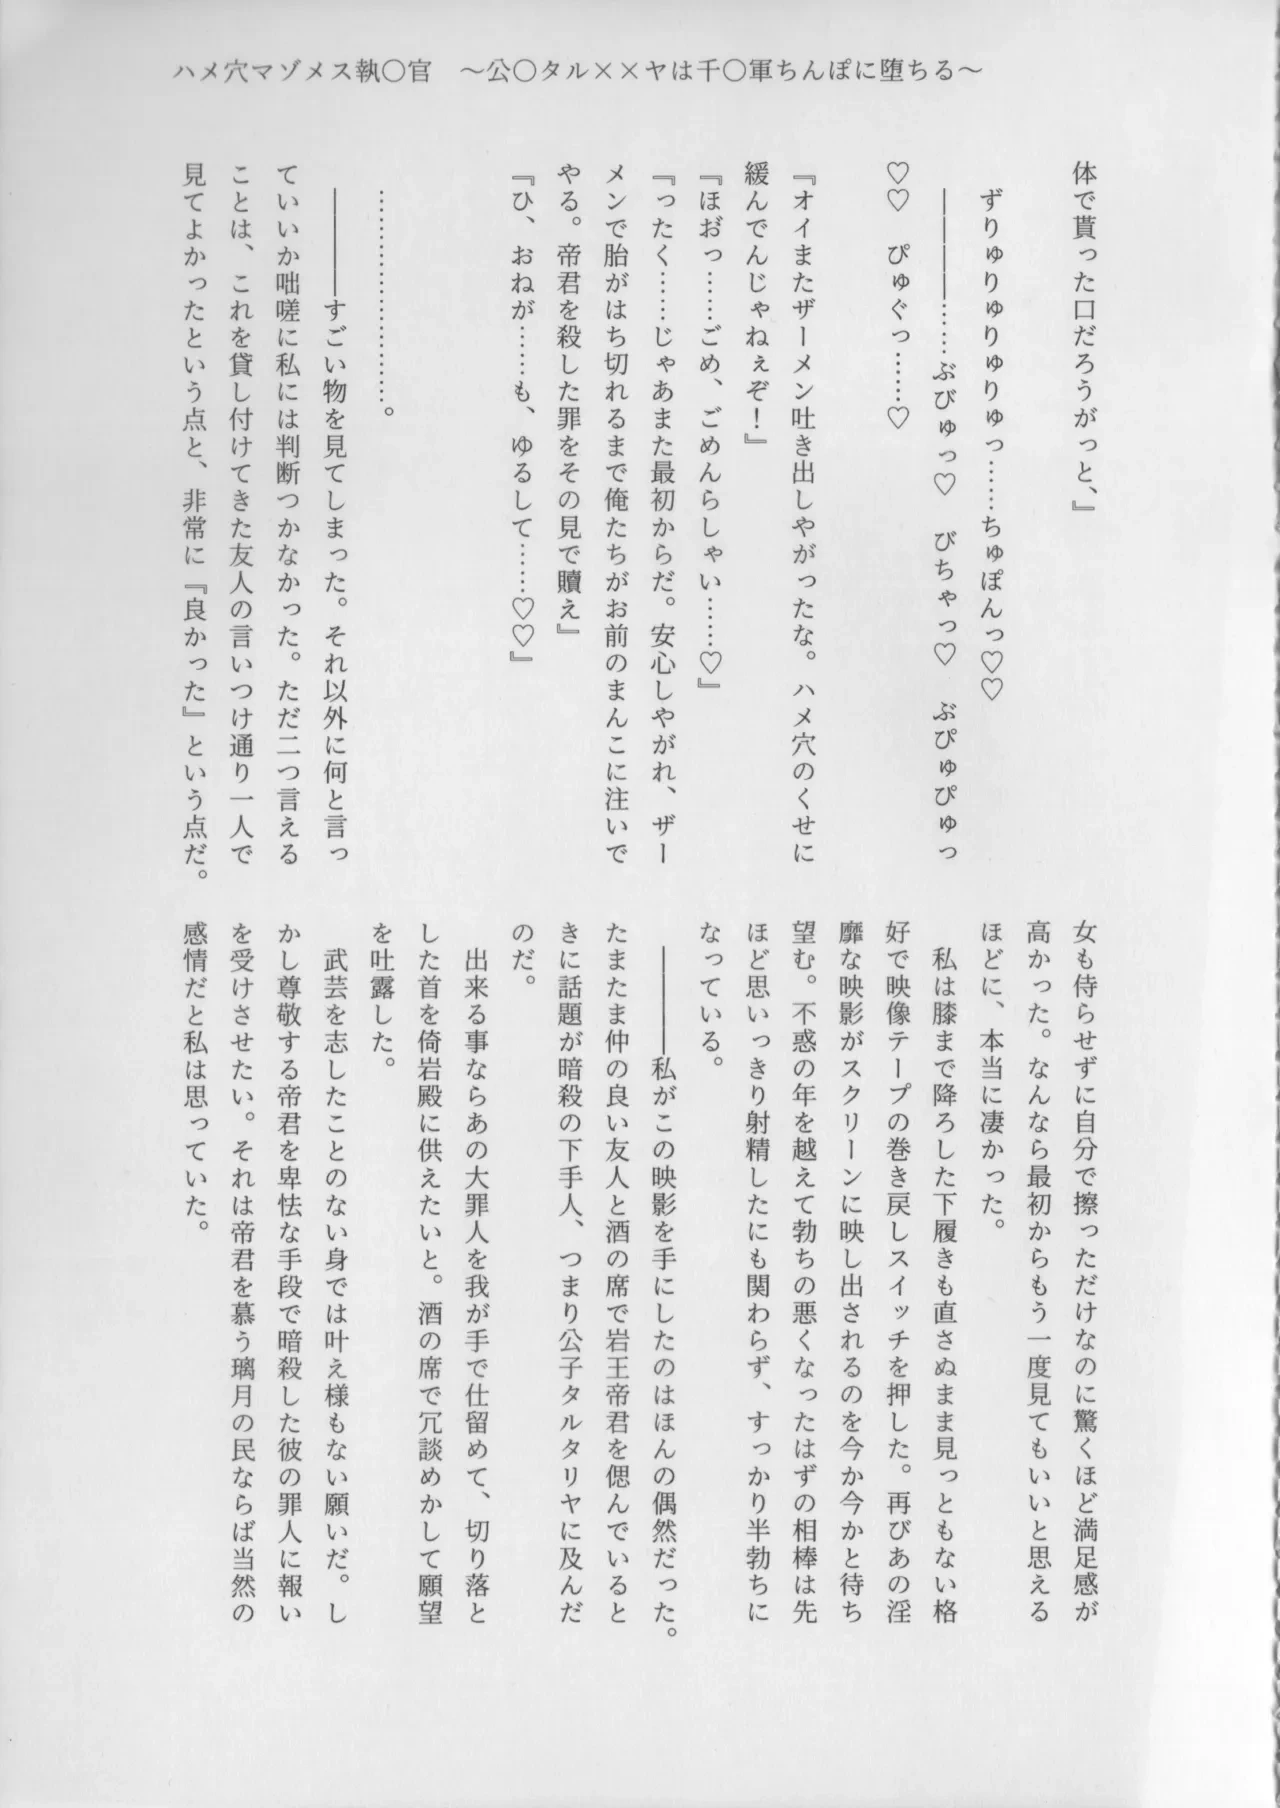 ハメ穴マゾメス執〇官　～公〇タル××ヤは千〇軍ちんぽに堕ちる～
体で貰った口だろうがっと、』
ずりゅりゅりゅりゅっ……ちゅぽんっ♡♡
――――……ぶびゅっ♡　びちゃっ♡　ぶぴゅぴゅっ
♡♡　ぴゅぐっ……♡
『オイまたザーメン吐き出しやがったな。ハメ穴のくせに
緩んでんじゃねぇぞ！』
『ほお゛っ……ごめ、ごめんらしゃい……♡』
『ったく……じゃあまた最初からだ。安心しやがれ、ザー
メンで胎がはち切れるまで俺たちがお前のまんこに注いで
やる。帝君を殺した罪をその見で贖え』
『ひ、おねが……も、ゆるして……♡♡』
…………………………。
――――すごい物を見てしまった。それ以外に何と言っ
ていいか咄嗟に私には判断つかなかった。ただ二つ言える
ことは、これを貸し付けてきた友人の言いつけ通り一人で
見てよかったという点と、非常に『良かった』という点だ。
女も侍らせずに自分で擦っただけなのに驚くほど満足感が
高かった。なんなら最初からもう一度見てもいいと思える
ほどに、本当に凄かった。
私は膝まで降ろした下履きも直さぬまま見っともない格
好で映像テープの巻き戻しスイッチを押した。再びあの淫
靡な映影がスクリーンに映し出されるのを今か今かと待ち
望む。不惑の年を越えて勃ちの悪くなったはずの相棒は先
ほど思いっきり射精したにも関わらず、すっかり半勃ちに
なっている。
――――私がこの映影を手にしたのはほんの偶然だった。
たまたま仲の良い友人と酒の席で岩王帝君を偲んでいると
きに話題が暗殺の下手人、つまり公子タルタリヤに及んだ
のだ。
出来る事ならあの大罪人を我が手で仕留めて、切り落と
した首を倚岩殿に供えたいと。酒の席で冗談めかして願望
を吐露した。
武芸を志したことのない身では叶え様もない願いだ。し
かし尊敬する帝君を卑怯な手段で暗殺した彼の罪人に報い
を受けさせたい。それは帝君を慕う璃月の民ならば当然の
感情だと私は思っていた。